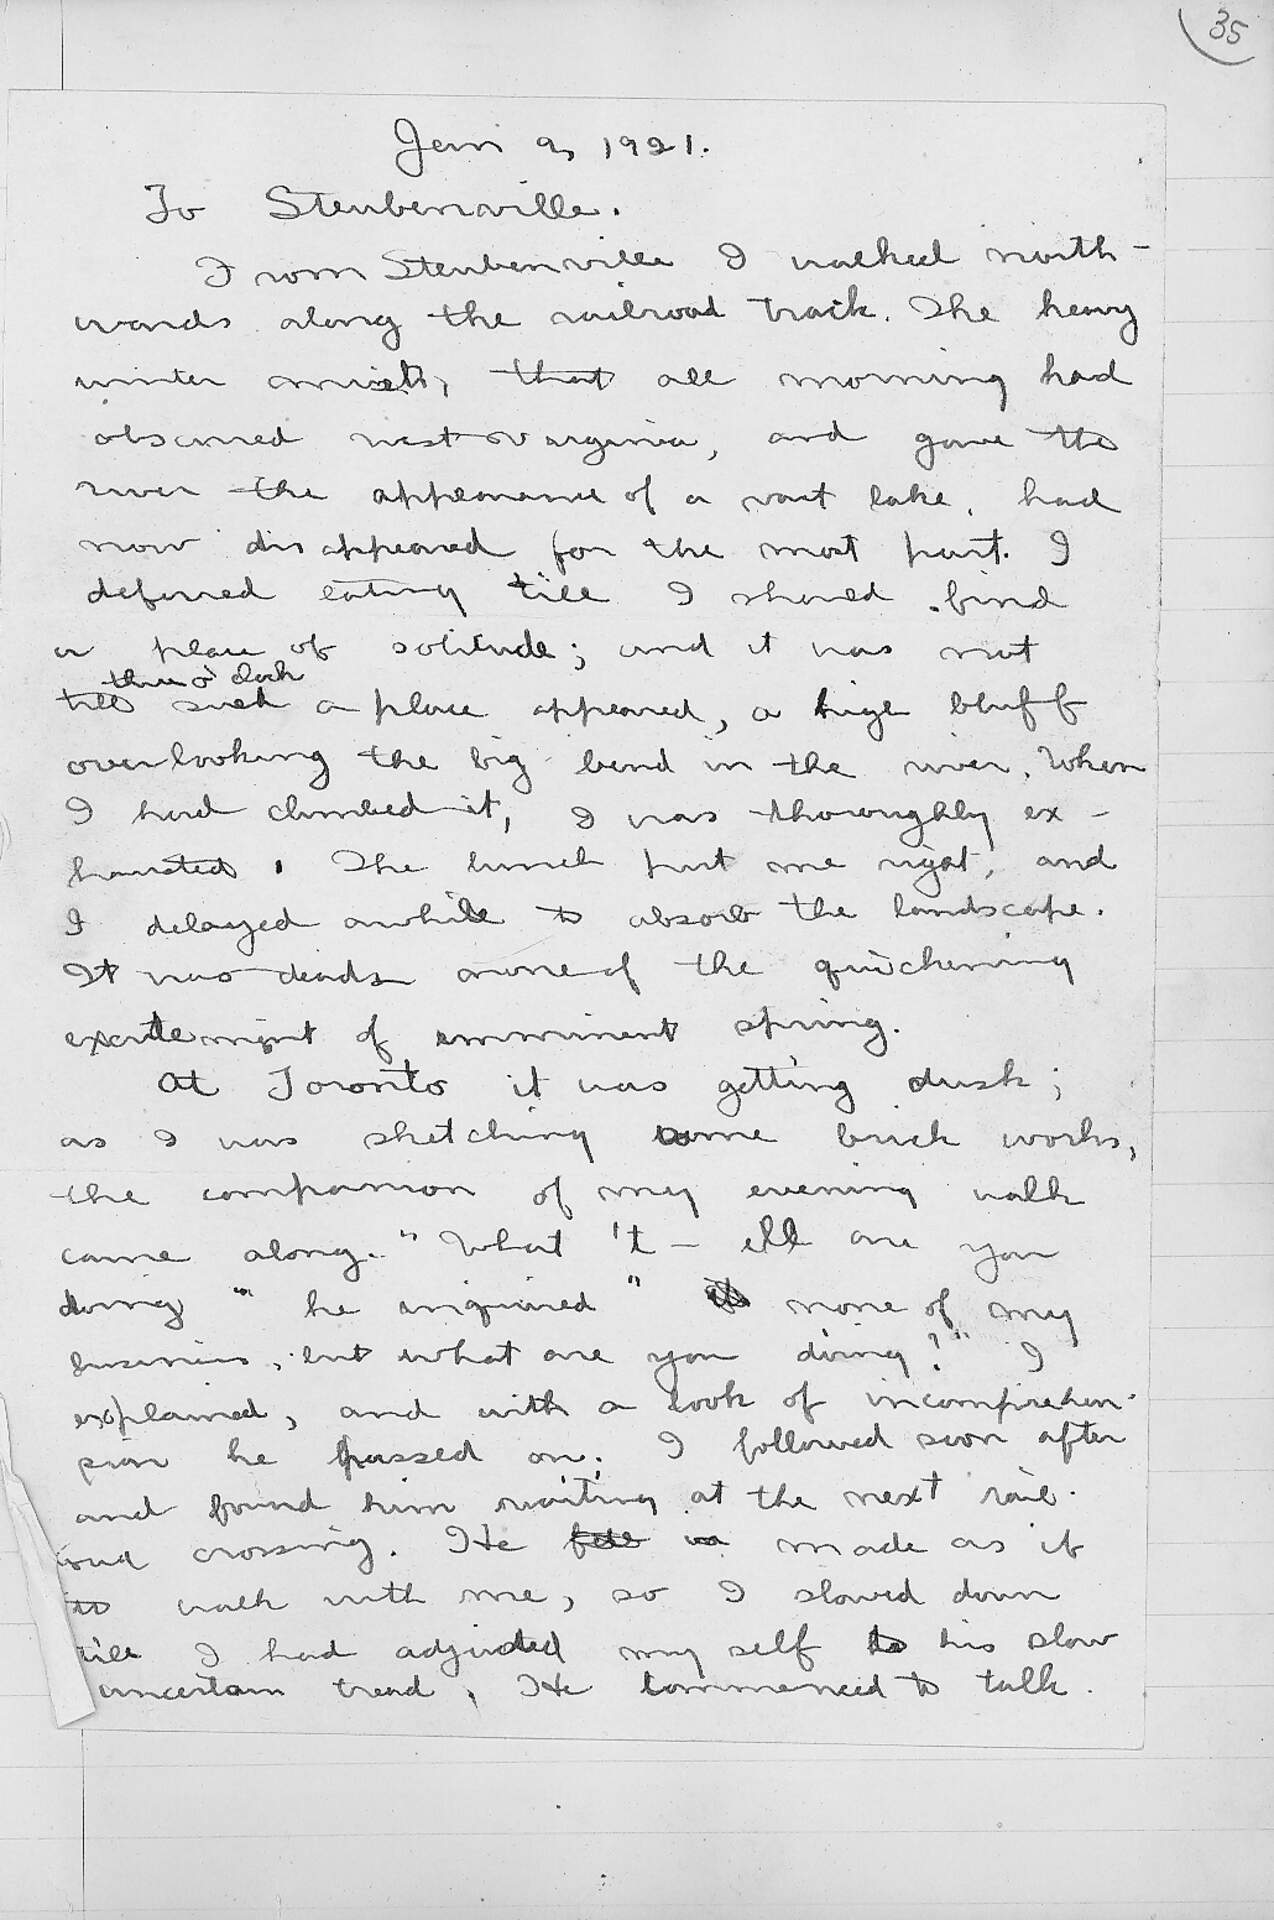 35
Jan 9, 1921.
To Steubenville.
From Steubenville I walked north-
wards along the railroad track. The heavy
winter mists, that all morning had
obscured west Virginia, and gave the
river the appearance of a vast lake, had
now disappeared for the most part. I
deferred eating till I should find
a place of solitude; and it was not
three o'clock
till such a place appeared, a huge bluff
overlooking the big bend in the river. When
I had climbed it, I was thoroughly ex-
hausted. The lunch put me right, and
I delayed awhile to absorb the landscape.
It was dead none of the quickening
excitement of imminent spring.
At Toronto it was getting dusk;
as I was sketching some brick works,
the companion of my evening walk
came along. "What 't-ell are you
doing" he inquired" none of my
business, but what are you doing?" I
explained, and with a look of incomprehen-
sion he passed on. I followed soon after
and found him waiting at the next rail-
road crossing. He fell in made as if
to walk with me, so I slowed down
till I had adjusted my self to his slow
uncertain tread. He commenced to talk.